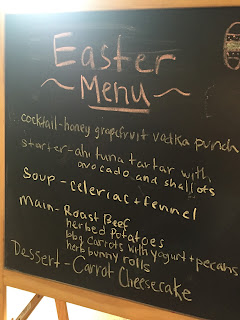 Easter
~ Menu ~
cocktail-honey grapefruit vodka punch
starter-ahi tuna tartar with
avocado and shallots
Soup - celeriac + fennel
main- Roast Beef
herbed Potatoes
bbq carrots with yogurt + pecans
herb bunny rolls
Dessert - Carrot Cheesecake